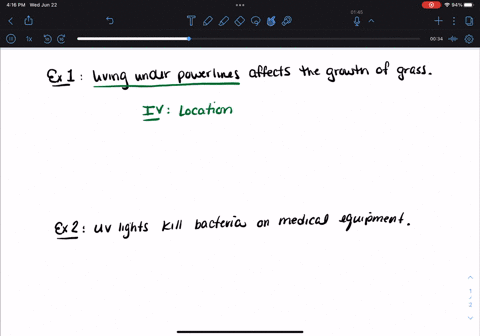 4:16 PM Wed Jun 22
94%
01:43
1x
00:34
Ex 1: living under powerlines affects the growth of grass.
IV: Location
Ex 2: UV lights kill bacteria on medical equipment.
1
2